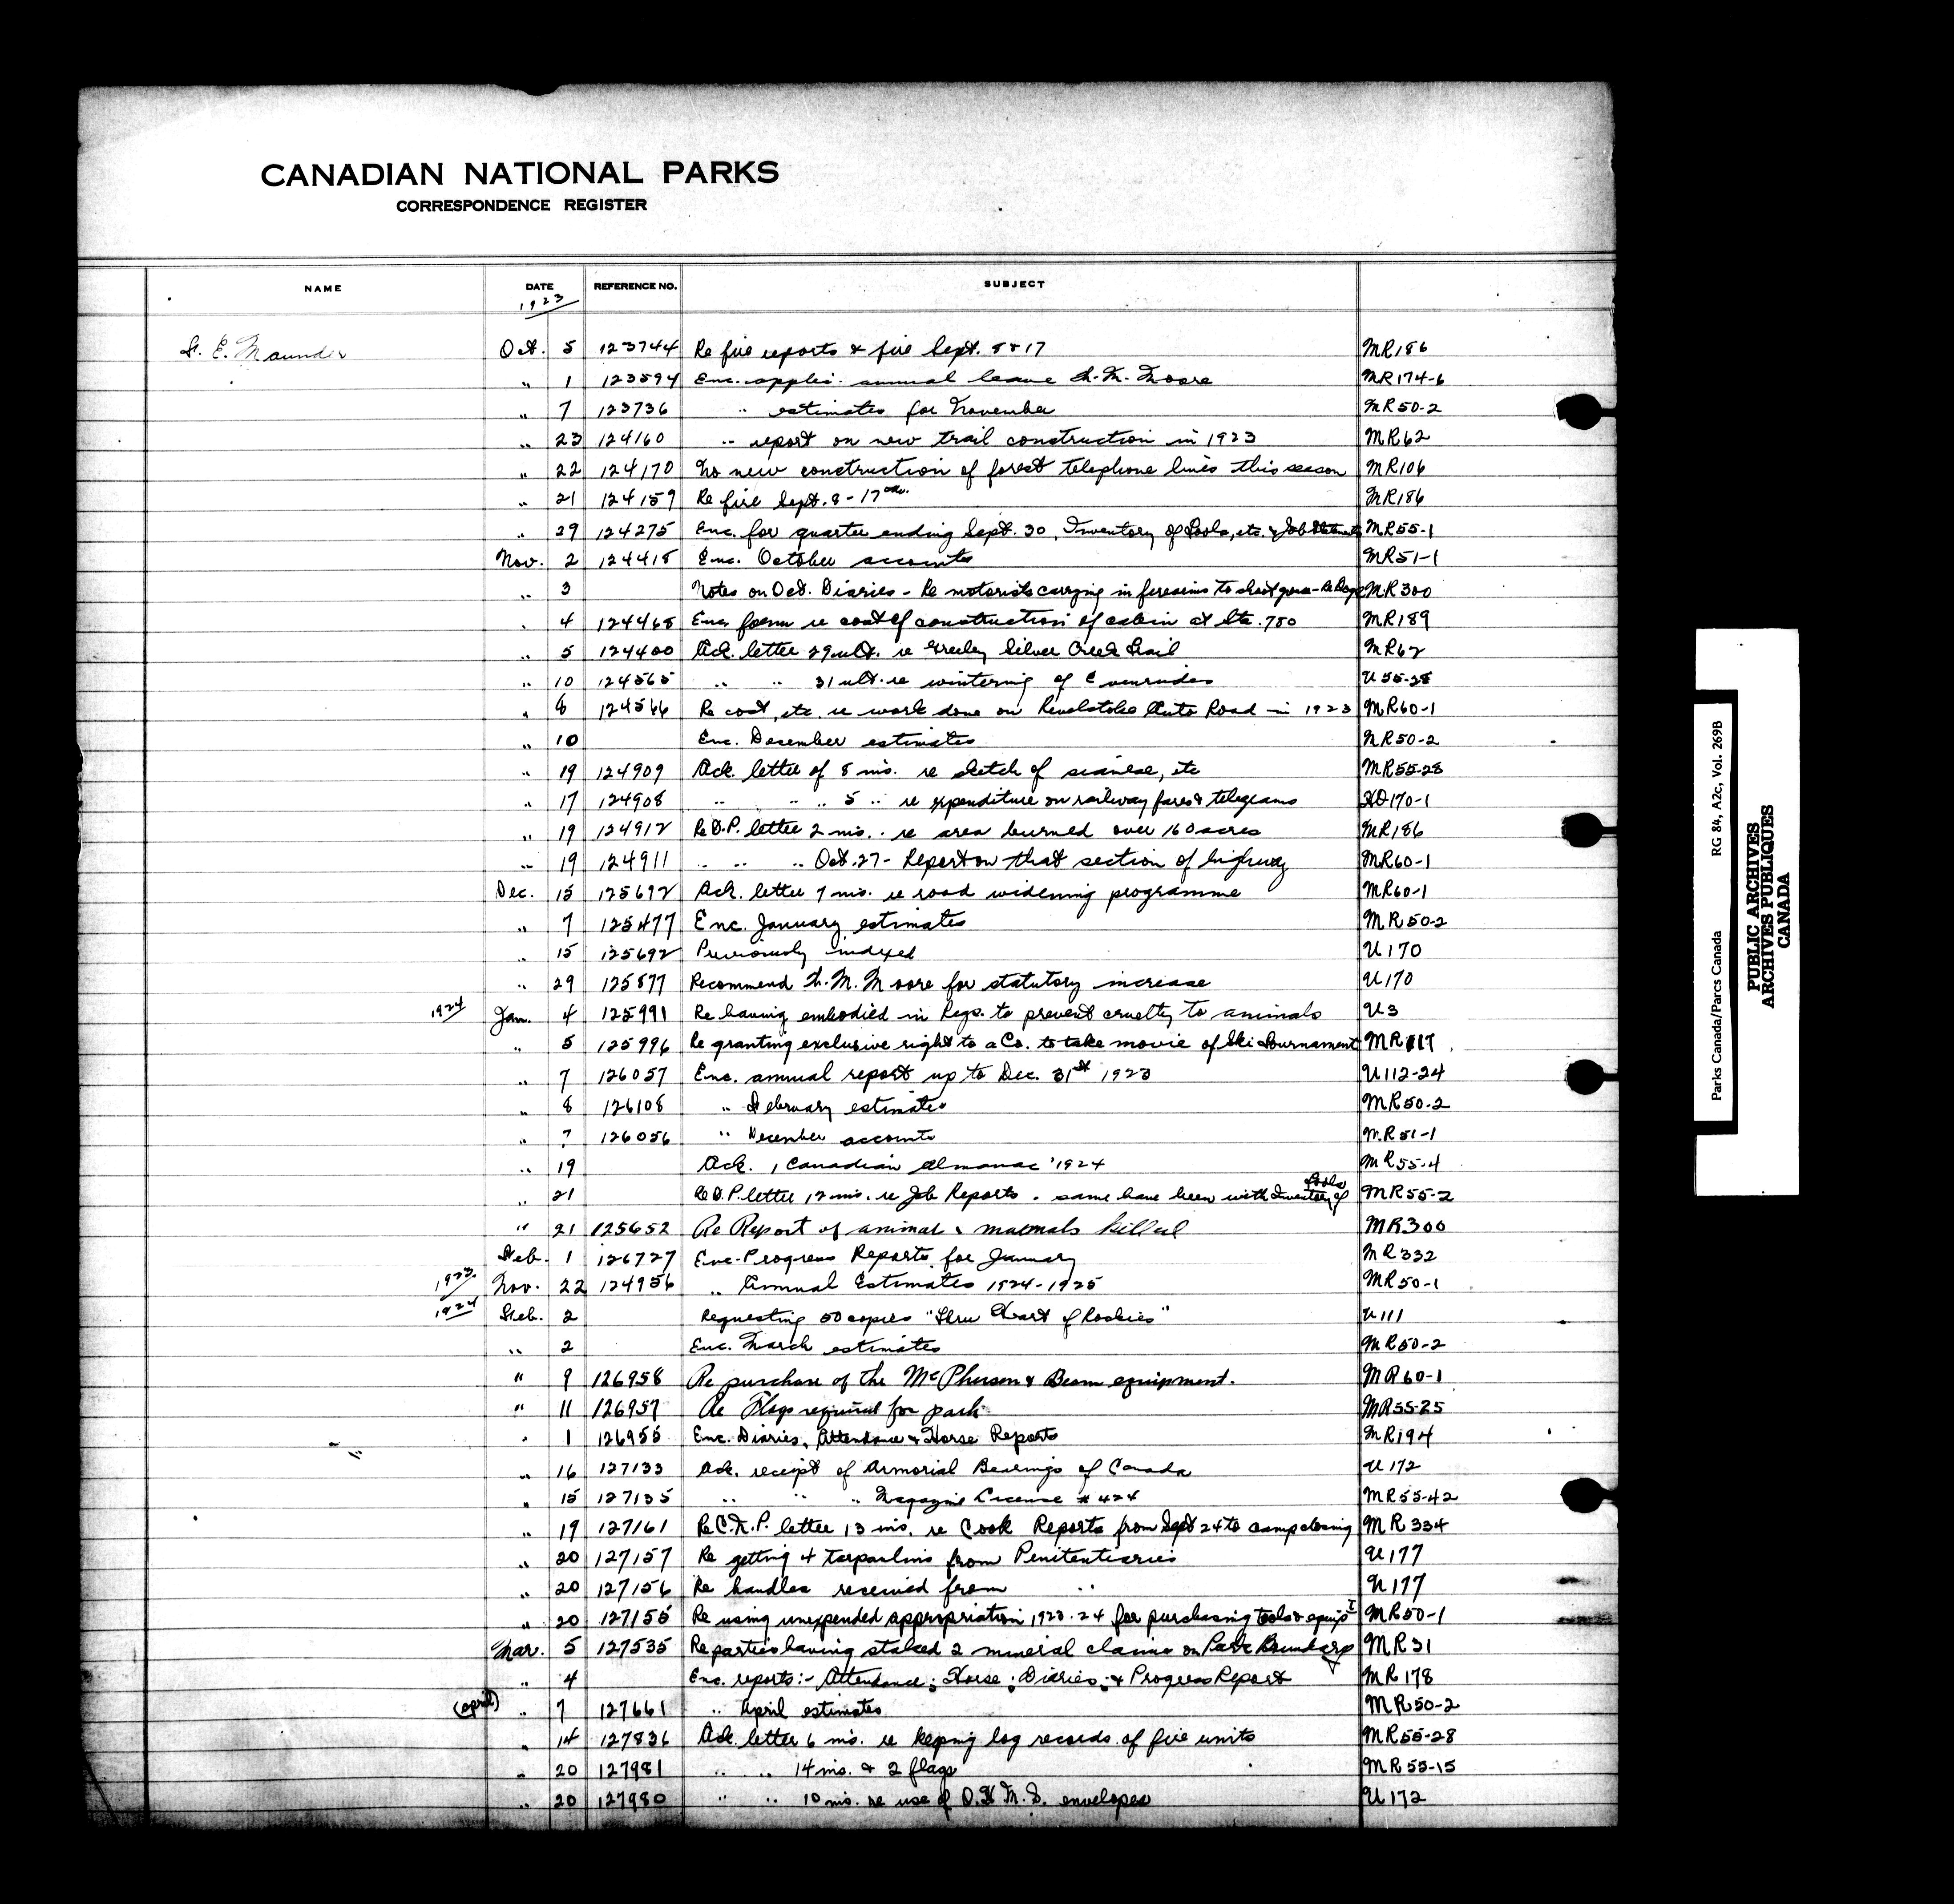 CANADIAN NATIONAL PARKS
CORRESPONDENCE REGISTER
NAME DATE REFERENCE NO. SUBJECT
1923
E. Maunder Oct. 5 123744 Re fire reports & fire Sept. 8 & 17 MR186
" 1 123594 Enc. applic. annual leave Moore MR174-6
" 7 123736 " estimates for November MR50-2
" 23 124160 " report on new trail construction in 1923 MR62
" 22 124170 No new construction of forest telephone lines this season MR106
" 21 124159 Re fire Sept. 8-17 MR186
" 29 124275 Enc. for quarter ending Sept. 30, Inventory of Tools, etc. & Job Statements MR55-1
Nov. 2 124418 Enc. October accounts MR51-1
" 3 Notes on Oct. Diaries - Re motorists carrying in firearms to shoot game - Re Dogs MR300
" 4 124468 Enc. form re cost of construction of cabin at Sta. 780 MR189
" 5 124400 Ack. letter 29 ult. re Greeley Silver Creek Trail MR62
" 10 124565 " " 31 ult. re wintering of Evenrudes U55-28
" 8 124566 Re cost, etc. re work done on Revelstoke Auto Road in 1923 MR60-1
" 10 Enc. December estimates MR50-2
" 19 124909 Ack. letter of 8 ins. re sketch of siamese, etc MR55-28
" 17 124908 " " " 5 " re expenditure on railway fares & telegrams HO170-1
" 19 124912 Re D.P. letter 2 ins. re area burned over 160 acres MR186
" 19 124911 " " " Oct. 27 - Report on that section of highway MR60-1
Dec. 15 125692 Ack. letter 7 ins. re road widening programme MR60-1
" 7 125477 Enc. January estimates MR50-2
" 15 125692 Previously indexed U170
" 29 125877 Recommend Moore for statutory increase U170
1924 Jan. 4 125991 Re having embodied in Regs. to prevent cruelty to animals U3
" 5 125996 Re granting exclusive right to a Co. to take movie of Ski Tournament MR117
" 7 126057 Enc. annual report up to Dec. 31st 1923 U112-24
" 8 126108 " February estimates MR50-2
" 7 126056 " December accounts MR51-1
" 19 Ack. 1 Canadian Almanac '1924 MR55-4
" 21 Re D.P. letter 12 ins. re Job Reports. same have been with Inventory of Tools MR55-2
" 21 125652 Re Report of animal & mammals killed MR300
Feb. 1 126727 Enc. Progress Reports for January MR332
1923 Nov. 22 124956 " Annual Estimates 1924-1925 MR50-1
1924 Feb. 2 Requesting 50 copies "Thru Heart of Rockies" U111
" 2 Enc. March estimates MR50-2
" 9 126958 Re purchase of the McPherson & Beam equipment. MR60-1
" 11 126957 Re Flags required for park MR55-25
" 1 126955 Enc. Diaries, Attendance & Horse Reports MR194
" 16 127133 Ack. receipt of Armorial Bearings of Canada U172
" 15 127135 " " " Magazine License # 424 MR55-42
" 19 127161 Re C.N.P. letter 13 ins. re Cook Reports from Sept 24 to camp closing MR334
" 20 127157 Re getting 4 tarpaulins from Penitentiaries U177
" 20 127156 Re handles received from " U177
" 20 127155 Re using unexpended appropriation 1923-24 for purchasing tools & equipt MR50-1
Mar. 5 127535 Re parties having staked 2 mineral claims on Park Boundary MR31
" 4 Enc. reports:- Attendance; Horse; Diaries; & Progress Report MR178
(April) " 7 127661 " April estimates MR50-2
" 14 127836 Ack. letter 6 ins. re keeping log records of fire units MR55-28
" 20 127981 " " 14 ins. & 2 flags MR55-15
" 20 127980 " " 10 ins. re use of O.H.M.S. envelopes U172
Parks Canada/Parcs Canada RG 84, A2c, Vol. 269B
PUBLIC ARCHIVES
ARCHIVES PUBLIQUES
CANADA